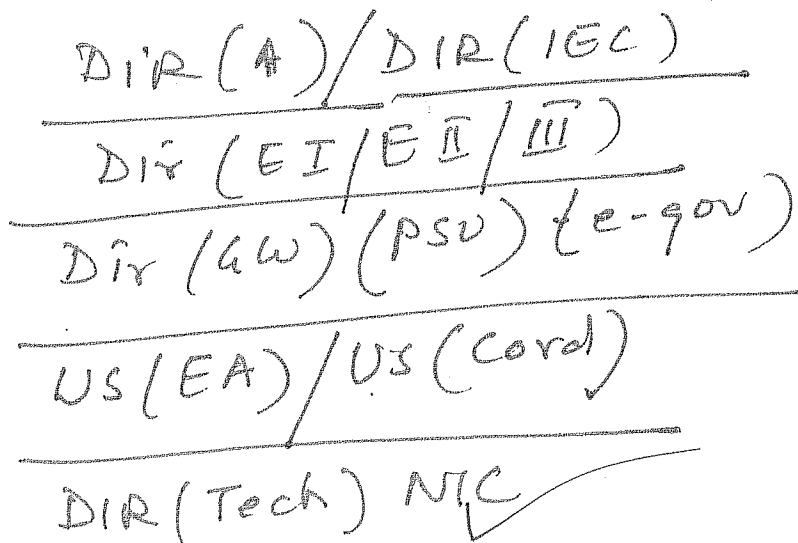 DIR (A) / DIR (IEC)
Dir (E I / E II / III)
Dir (GW) (PSU) (e-gov)
US (EA) / US (Cord)
DIR (Tech) NIC